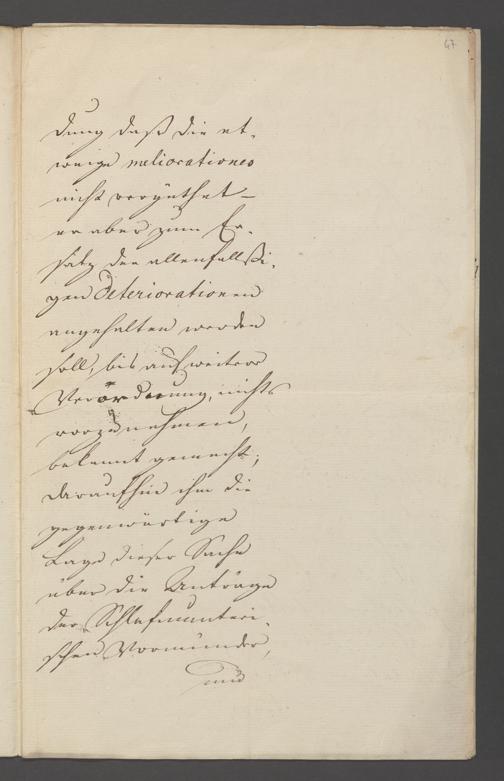 47
dung daß die et-
weige meliorationes
nicht vergüthet –
er aber zum Er-
satz der allenfallßi-
gen Deteriorationen
angehalten werden
soll, bis auf weitere
Verordnung, nichts
vorzunehmen,
bekannt gemacht;
daraufhin ihm die
gegenwärtige
Lage dieser Sache
über die Anträge
der
schen Vormünder,
und